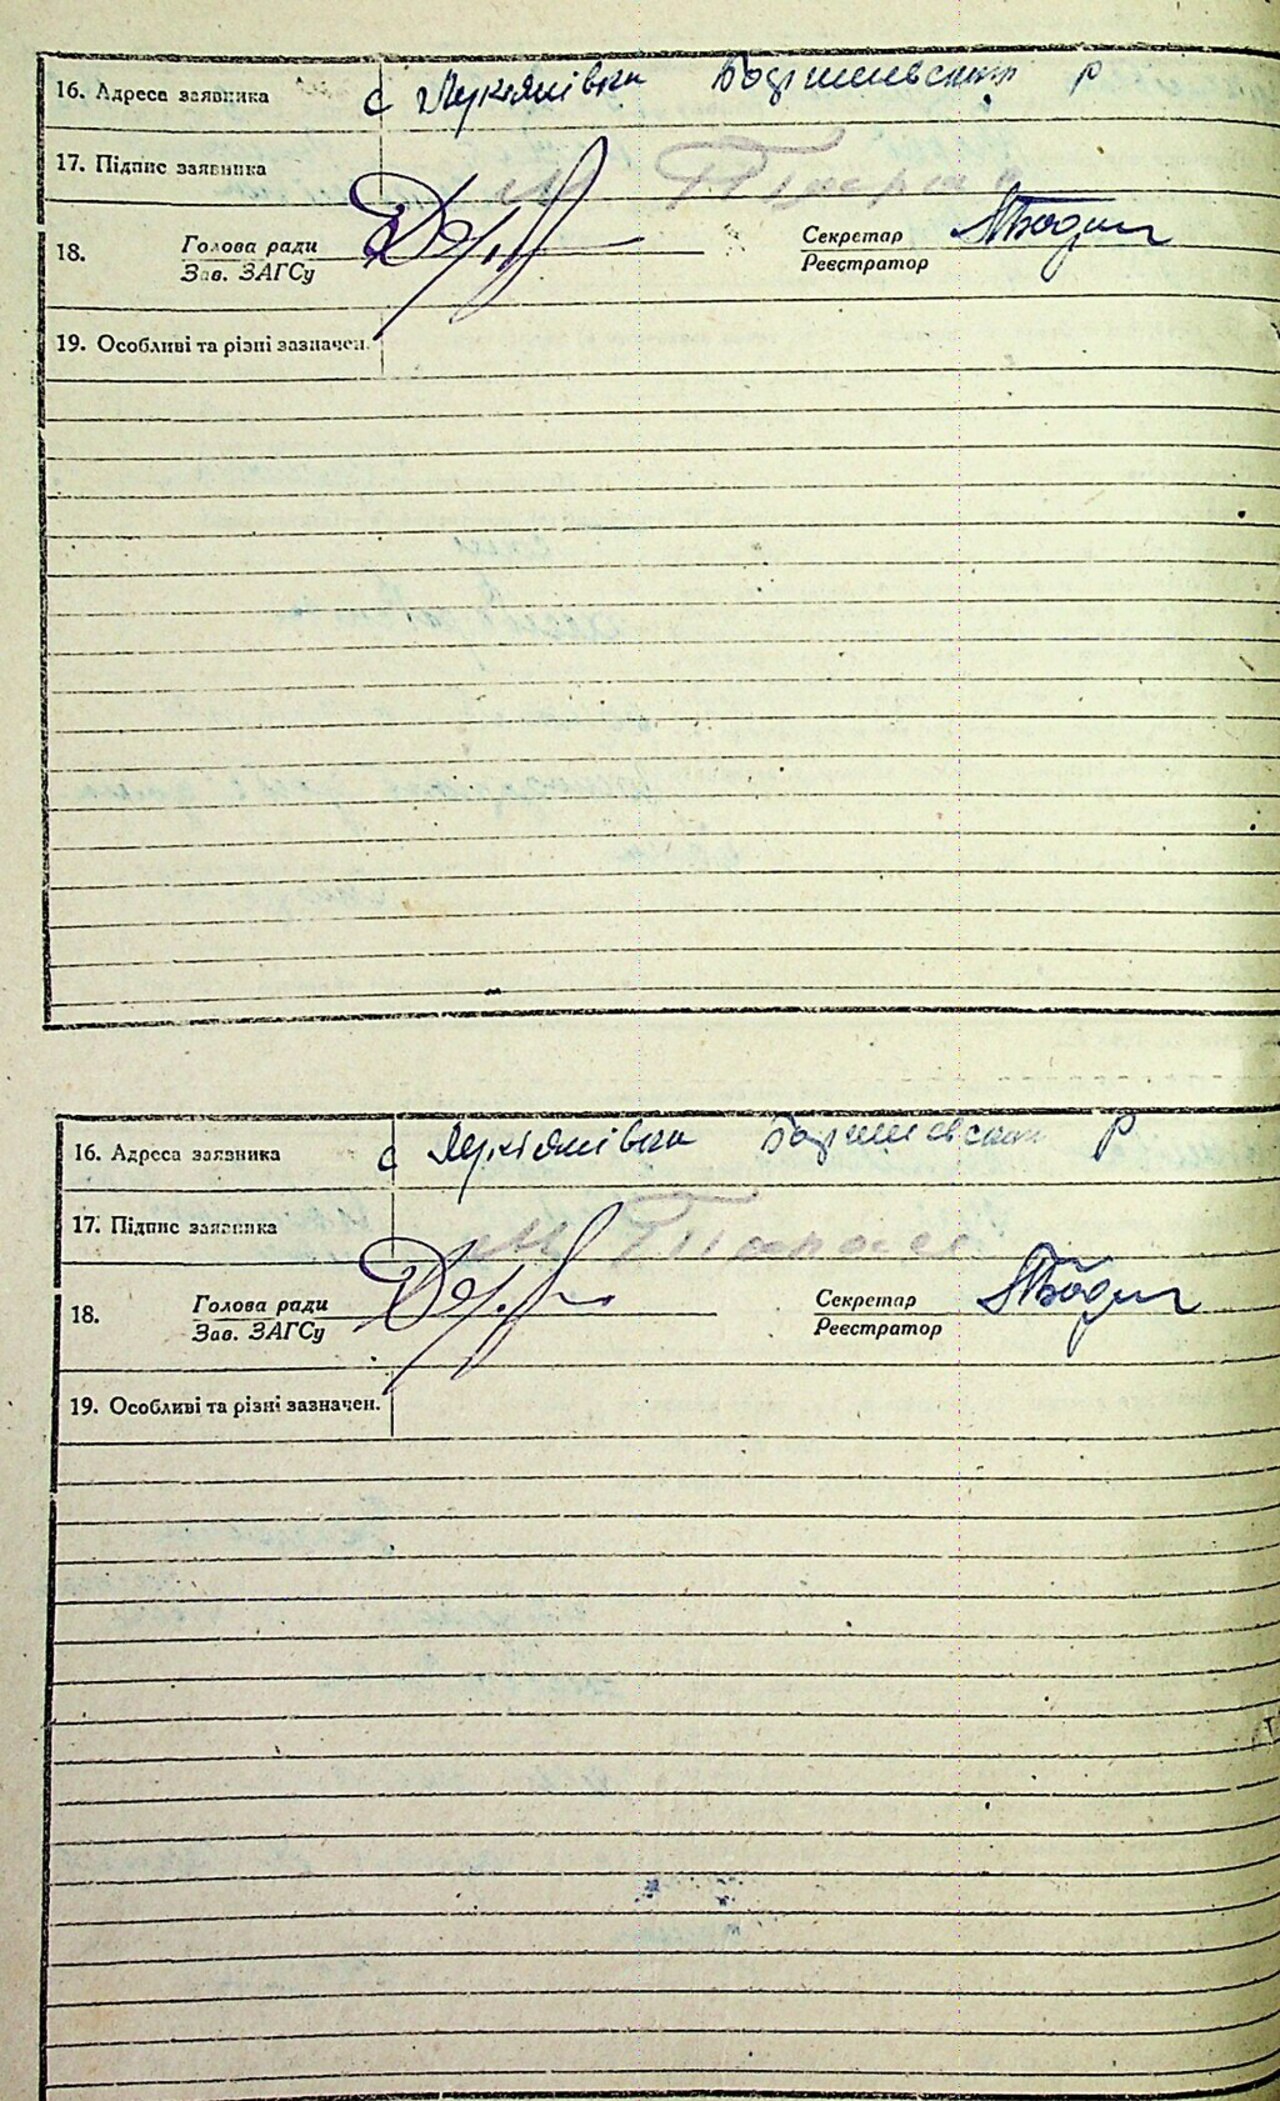 16. Адреса заявника с Лукіянівка Баришевский р
17. Підпис заявника
18. Голова ради Секретар
Зав. ЗАГСу Реєстратор
19. Особливі та різні зазначен.
16. Адреса заявника с Лукіянівка Баришевский р
17. Підпис заявника
18. Голова ради Секретар
Зав. ЗАГСу Реєстратор
19. Особливі та різні зазначен.